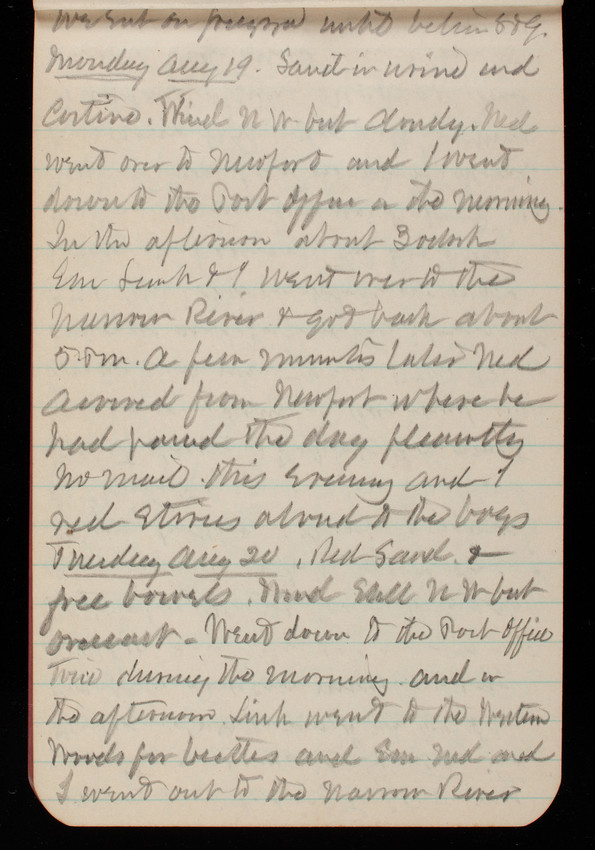 went on progressed until between 8 & 9.
Monday Aug 19. Sand in urine and
Costive. Wind N W but cloudy. Ned
went over to Newport and I went
down to the Post Office in the morning.
In the afternoon about 3 oclock
Em Linh & I went over to the
Narrow River & got back about
5 P.m. A few minutes later Ned
arrived from Newport where he
had found the day pleasantly
No mail this evening and I
red stories aloud to the boys
Tuesday Aug 20. Red Sand &
free bowels. Wind Still N W but
overcast - Went down to the Post Office
twice during the morning. and in
the afternoon Linh went to the Western
Woods for beetles and Em Ned and
I went out to the Narrow River